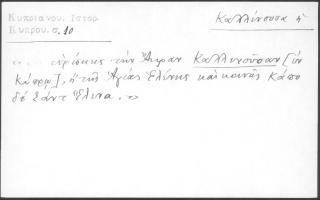 Κυπριανοῦ. Ἱστορ.
Κύπρου.σ.10
Καλλίνουσα ἡ
«... εὑρίσκεις τὴν Ἄκραν Καλλινοῦσαν [ἐν
Κύπρῳ], ἢ τῆς Ἁγίας Ἑλένης καὶ κοινῶς Κάπο
δὲ Σάντ Ἔλενα.»